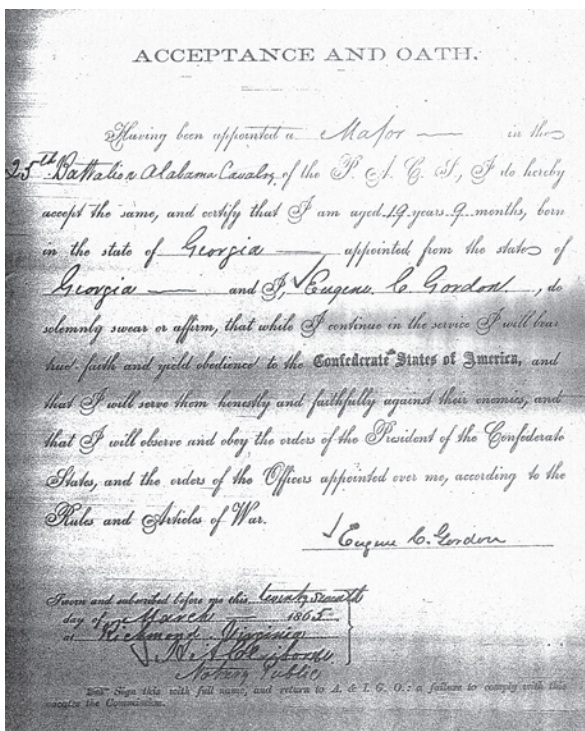 ACCEPTANCE AND OATH.
Having been appointed a Major in the
25th Battalion Alabama Cavalry of the P. A. C. S., I do hereby
accept the same, and certify that I am aged 19 years 9 months, born
in the state of Georgia appointed from the state of
Georgia and I, Eugene C. Gordon, do
solemnly swear or affirm, that while I continue in the service I will bear
true faith and yield obedience to the Confederate States of America, and
that I will serve them honestly and faithfully against their enemies, and
that I will observe and obey the orders of the President of the Confederate
States, and the orders of the Officers appointed over me, according to the
Rules and Articles of War.
Eugene C. Gordon
Sworn and subscribed before me this twenty seventh
day of March 1865
at Richmond Virginia
Notary Public
Sign this with full name, and return to A. & I. G. O.: a failure to comply with this
vacates the Commission.